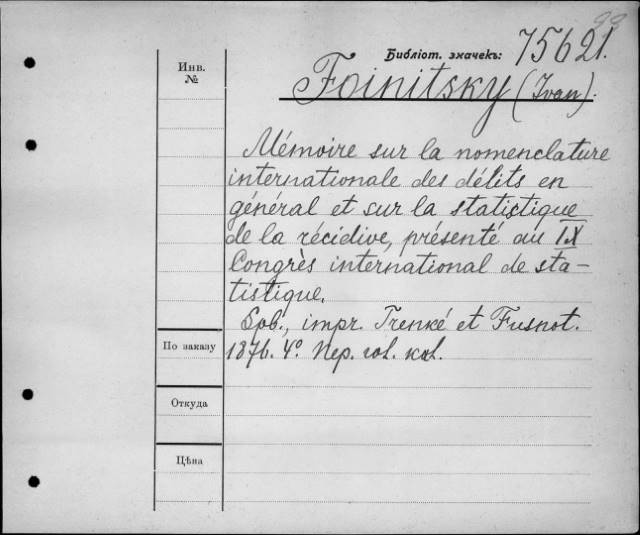 99
Библіот. значекъ: 75621.
Инв.
№
Foinitsky (Ivan).
Mémoire sur la nomenclature
internationale des délits en
général et sur la statistique
de la récidive, présenté au IX
Congrès international de sta-
tistique.
Spb., impr. Trenké et Fusnot.
По заказу
1876. 4º.
Откуда
Цѣна